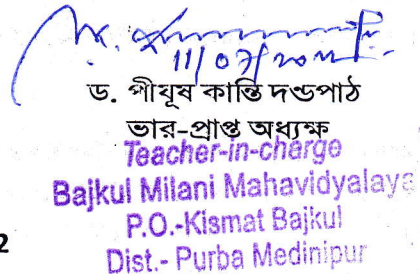 11/07/2022
ড. পীযূষ কান্তি দণ্ডপাঠ
ভার-প্রাপ্ত অধ্যক্ষ
Teacher-in-charge
Bajkul Milani Mahavidyalaya
P.O.-Kismat Bajkul
2
Dist.- Purba Medinipur